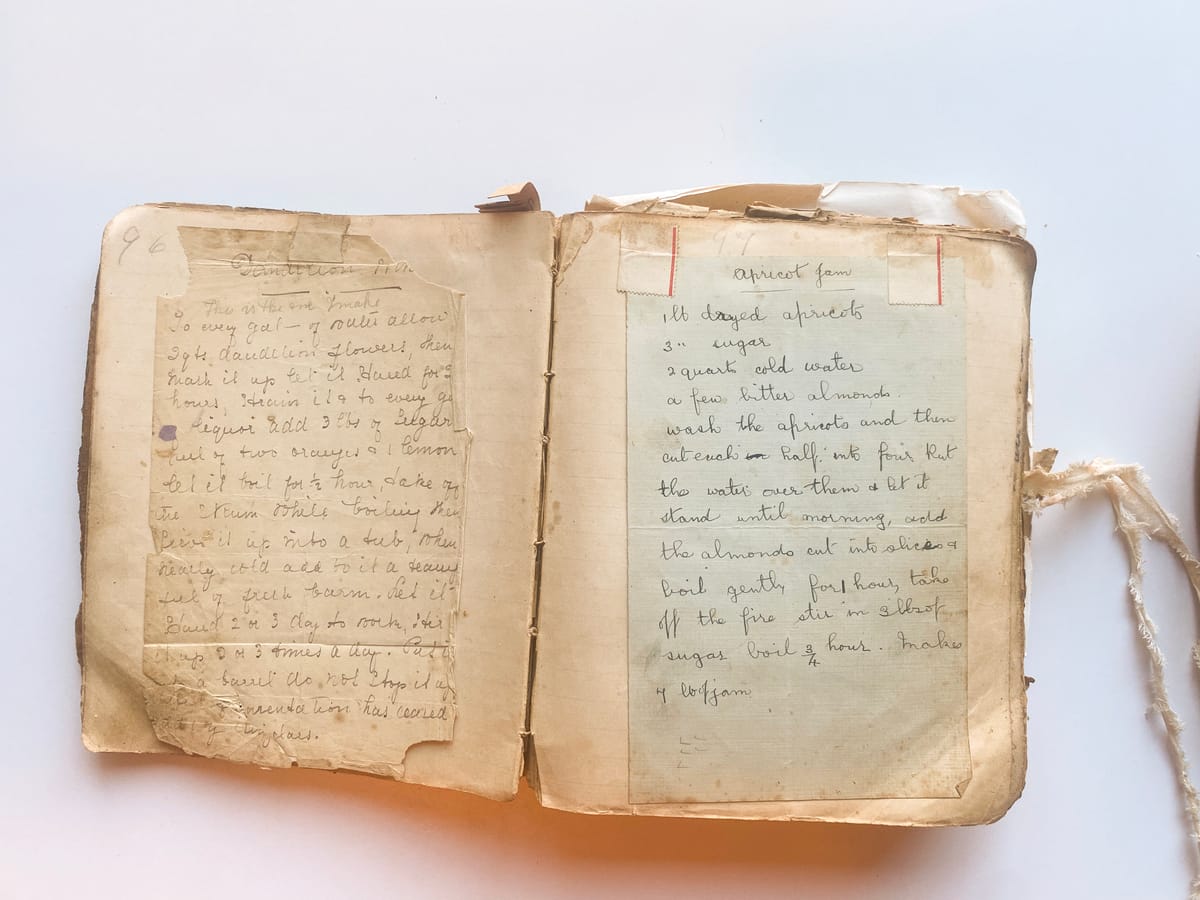 96
Dandelion
This is the one I make
To every gal - of water allow
3 qts dandelion flowers, then
mash it up let it Stand for
hours, Strain it & to every
liquor add 3 lbs of Sugar
peel of two oranges & 1 lemon
let it boil for ½ hour, take off
the while boiling then
it up into a tub, when
nearly cold add to it a
full of fresh barm. Let it
Stand 2 or 3 day to work, Stir
it up 2 or 3 times a day. Put
a barrel do not Stop it
has ceased
97
Apricot Jam
1 lb dryed apricots
3 " sugar
2 quarts cold water
a few bitter almonds.
wash the apricots and then
cut each half into four Put
the water over them & let it
stand until morning, add
the almonds cut into slices &
boil gently for 1 hour, take
off the fire stir in 3 lbs of
sugar boil ¾ hour. Makes
7 lb of jam